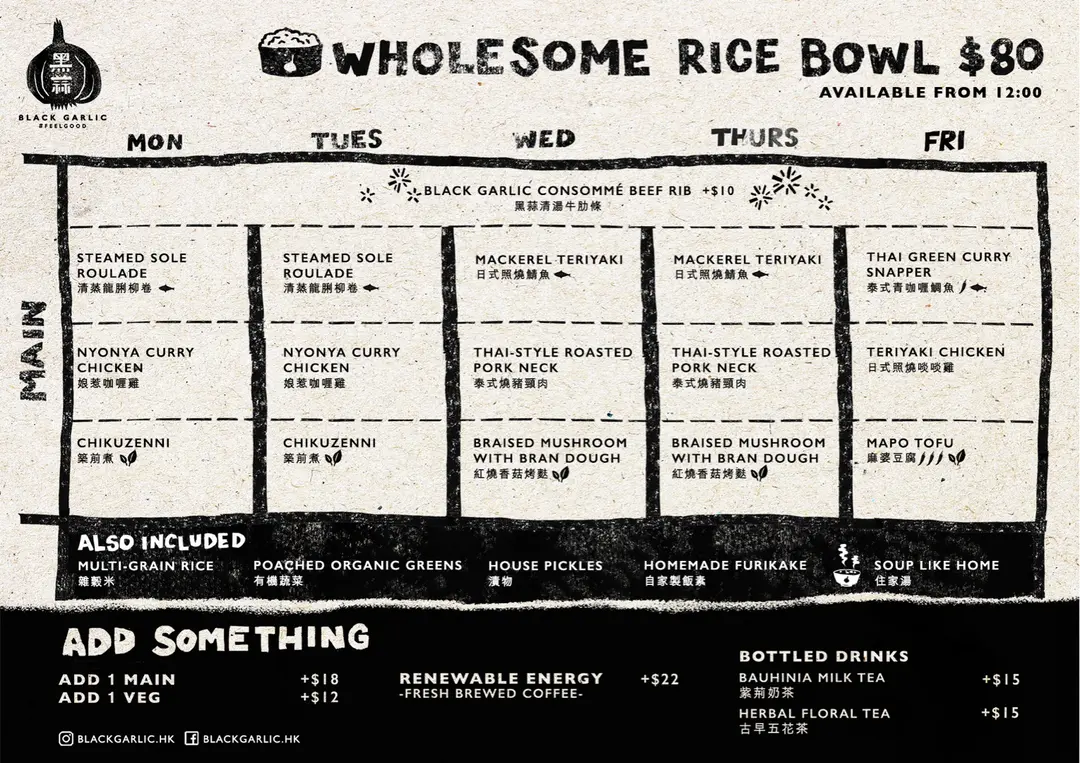 黑蒜
BLACK GARLIC
#FEELGOOD
WHOLESOME RICE BOWL $80
AVAILABLE FROM 12:00
MON TUES WED THURS FRI
MAIN
BLACK GARLIC CONSOMMÉ BEEF RIB +$10
黑蒜清湯牛肋條
STEAMED SOLE
ROULADE
清蒸龍脷柳卷
STEAMED SOLE
ROULADE
清蒸龍脷柳卷
MACKEREL TERIYAKI
日式照燒鯖魚
MACKEREL TERIYAKI
日式照燒鯖魚
THAI GREEN CURRY
SNAPPER
泰式青咖喱鯛魚
NYONYA CURRY
CHICKEN
娘惹咖喱雞
NYONYA CURRY
CHICKEN
娘惹咖喱雞
THAI-STYLE ROASTED
PORK NECK
泰式燒豬頸肉
THAI-STYLE ROASTED
PORK NECK
泰式燒豬頸肉
TERIYAKI CHICKEN
日式照燒啖啖雞
CHIKUZENNI
築前煮
CHIKUZENNI
築前煮
BRAISED MUSHROOM
WITH BRAN DOUGH
紅燒香菇烤麩
BRAISED MUSHROOM
WITH BRAN DOUGH
紅燒香菇烤麩
MAPO TOFU
麻婆豆腐
ALSO INCLUDED
MULTI-GRAIN RICE
雜穀米
POACHED ORGANIC GREENS
有機蔬菜
HOUSE PICKLES
漬物
HOMEMADE FURIKAKE
自家製飯素
SOUP LIKE HOME
住家湯
ADD SOMETHING
ADD 1 MAIN +$18
ADD 1 VEG +$12
RENEWABLE ENERGY +$22
-FRESH BREWED COFFEE-
BOTTLED DRINKS
BAUHINIA MILK TEA +$15
紫荊奶茶
HERBAL FLORAL TEA +$15
古早五花茶
BLACKGARLIC.HK BLACKGARLIC.HK